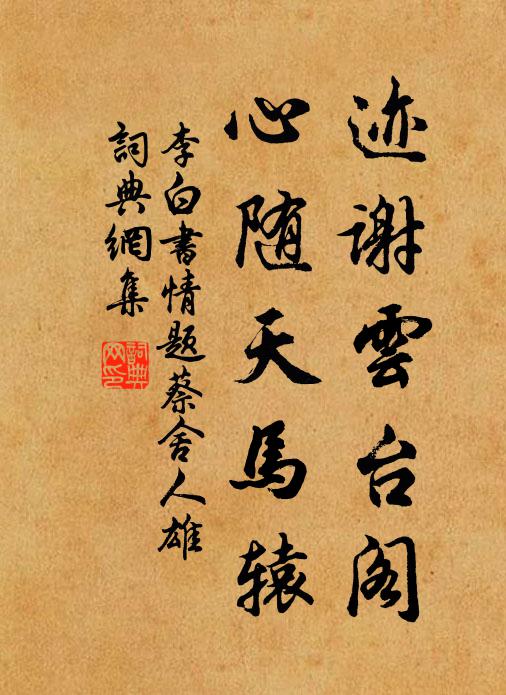 迹谢雲台阁
心随天馬辕
李白書情题蔡舍人雄
詞典網集
詞典
网印